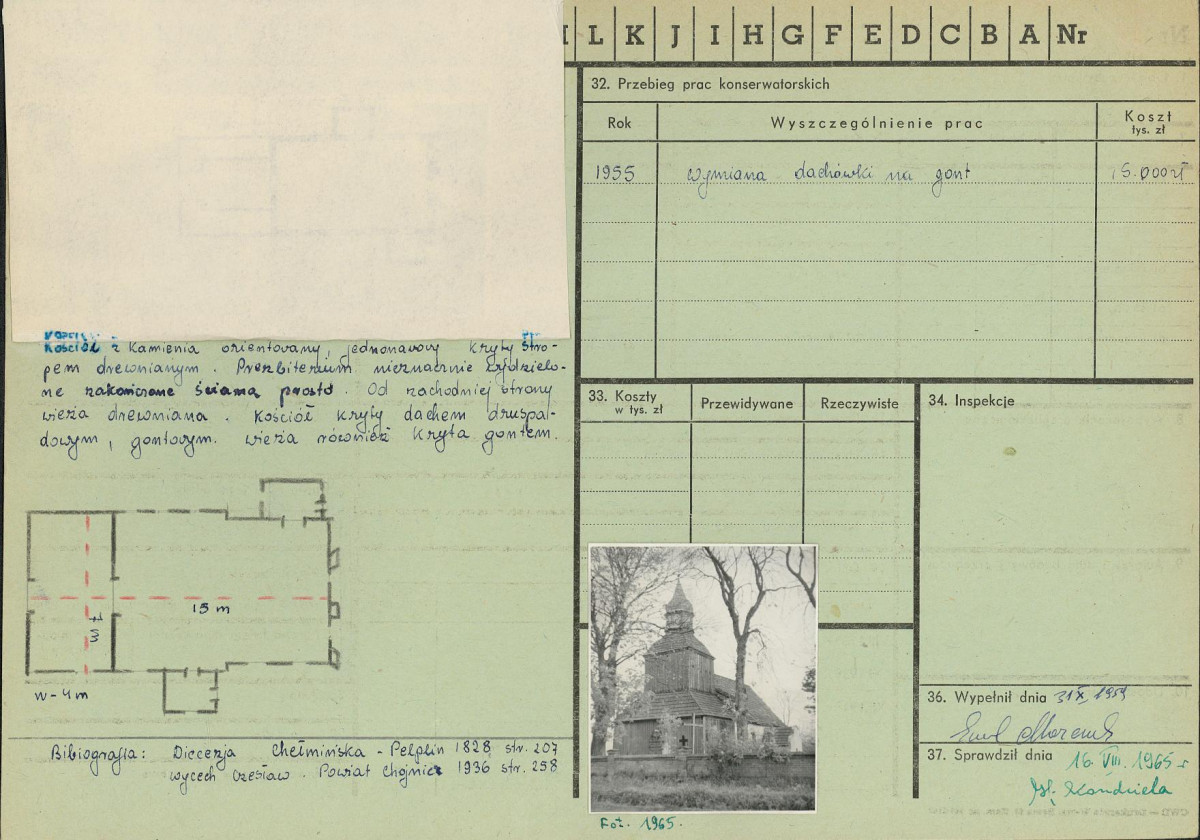 L K J I H G F E D C B A Nr
32. Przebieg prac konserwatorskich
Rok Wyszczególnienie prac Koszt tys. zł
1955 wymiana dachówki na gont 15.000 zł
Kościół z kamienia orientowany, jednonawowy kryty stro-
pem drewnianym. Prezbiterium nieznacznie wydzielo-
ne zakończone ścianą prosto. Od zachodniej strony
wieża drewniana. Kościół kryty dachem druspa-
dowym, gontowym. wieża również kryta gontem.
15 m
7 m
w - 4 m
Bibiografia: Diecezja Chełmińska - Pelplin 1828 str. 207
wycech Czesław. Powiat Chojnice 1936 str. 258
33. Koszty w tys. zł Przewidywane Rzeczywiste
34. Inspekcje
Fot. 1965.
36. Wypełnił dnia 31 X 1959
37. Sprawdził dnia 16. VIII. 1965 r